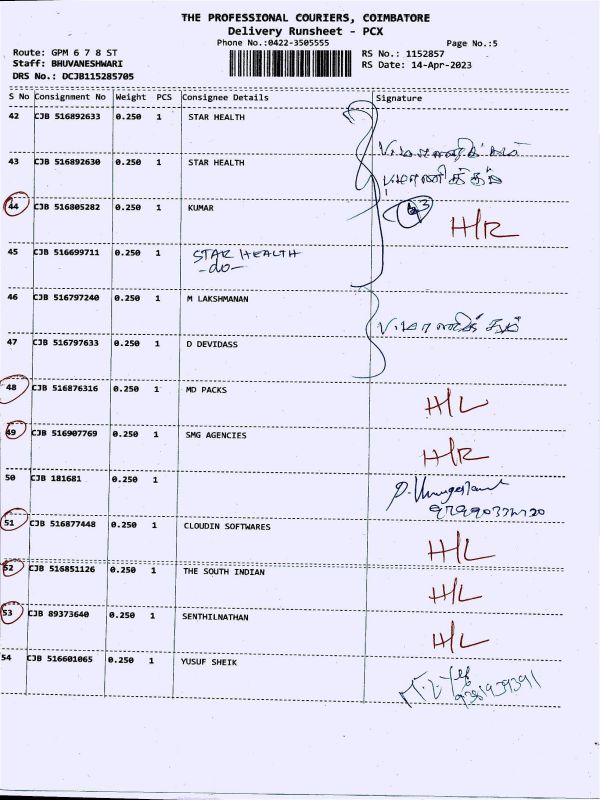 THE PROFESSIONAL COURIERS, COIMBATORE
Delivery Runsheet - PCX
Phone No.:0422-3505555
Page No.:5
Route: GPM 6 7 8 ST
RS No.: 1152857
Staff: BHUVANESHWARI
RS Date: 14-Apr-2023
DRS No.: DCJB115285705
S No Consignment No Weight PCS Consignee Details Signature
42 CJB 516892633 0.250 1 STAR HEALTH
43 CJB 516892630 0.250 1 STAR HEALTH
44 CJB 516805282 0.250 1 KUMAR H/R
45 CJB 516699711 0.250 1 STAR HEALTH
-do-
46 CJB 516797240 0.250 1 M LAKSHMANAN
47 CJB 516797633 0.250 1 D DEVIDASS
48 CJB 516876316 0.250 1 MD PACKS H/L
49 CJB 516907769 0.250 1 SMG AGENCIES H/R
50 CJB 181681 0.250 1
51 CJB 516877448 0.250 1 CLOUDIN SOFTWARES H/L
52 CJB 516851126 0.250 1 THE SOUTH INDIAN H/L
53 CJB 89373640 0.250 1 SENTHILNATHAN H/L
54 CJB 516601065 0.250 1 YUSUF SHEIK